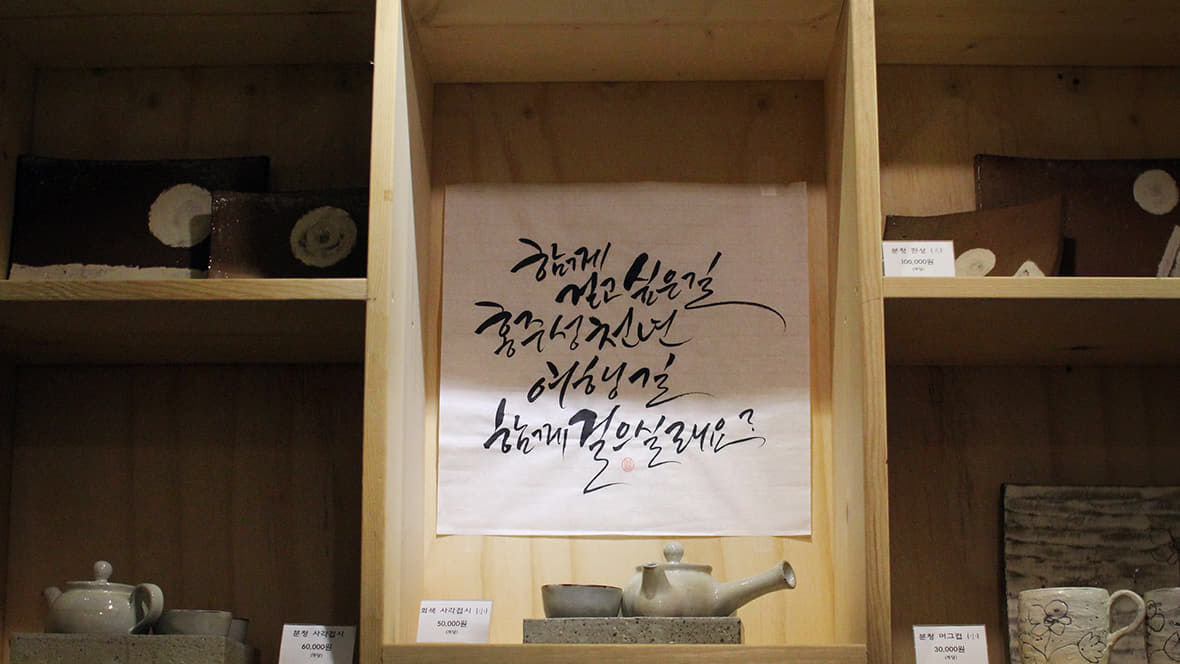 함께
걷고 싶은 길
홍주성 천년
여행길
함께 걸으실래요?
분청 한상 (大)
100,000원
(개당)
회색 사각접시 (小)
50,000원
(개당)
분청 사각접시
60,000원
(개당)
분청 머그컵 (小)
30,000원
(개당)